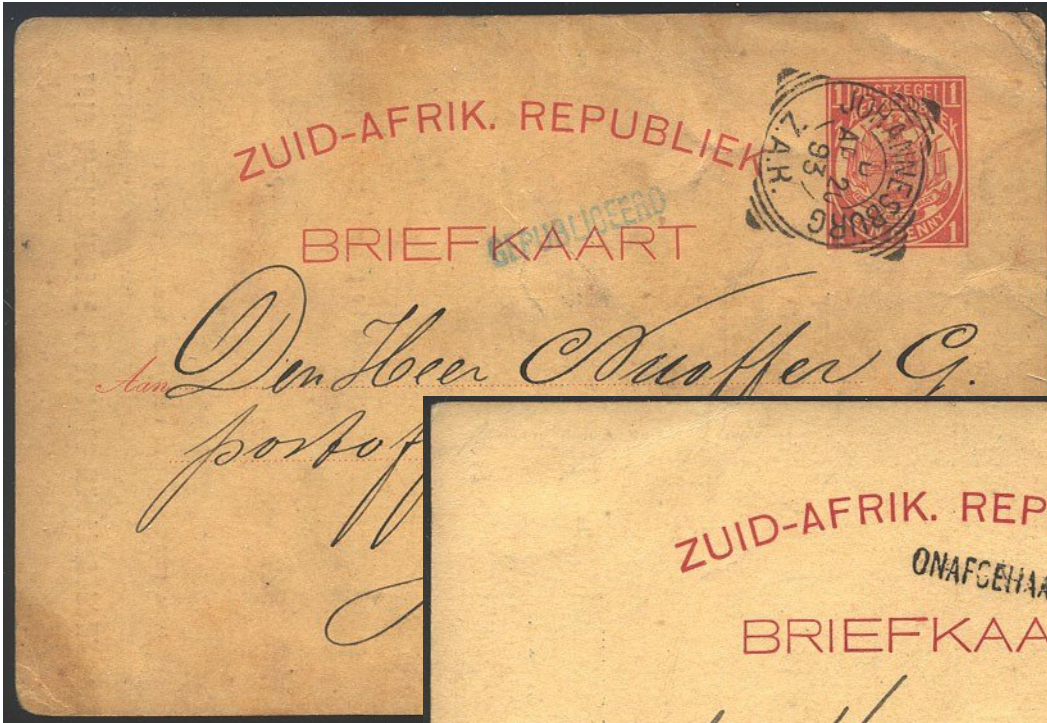 ZUID-AFRIK. REPUBLIEK
1 POSTZEGEL 1
JOHANNESBURG
AP 20
93
Z.A.R.
PENNY 1
GEPUBLICEERD
BRIEFKAART
Aan Den Heer Nuoffer G.
postof
ZUID-AFRIK. REP
ONAFGEHAA
BRIEFKAA